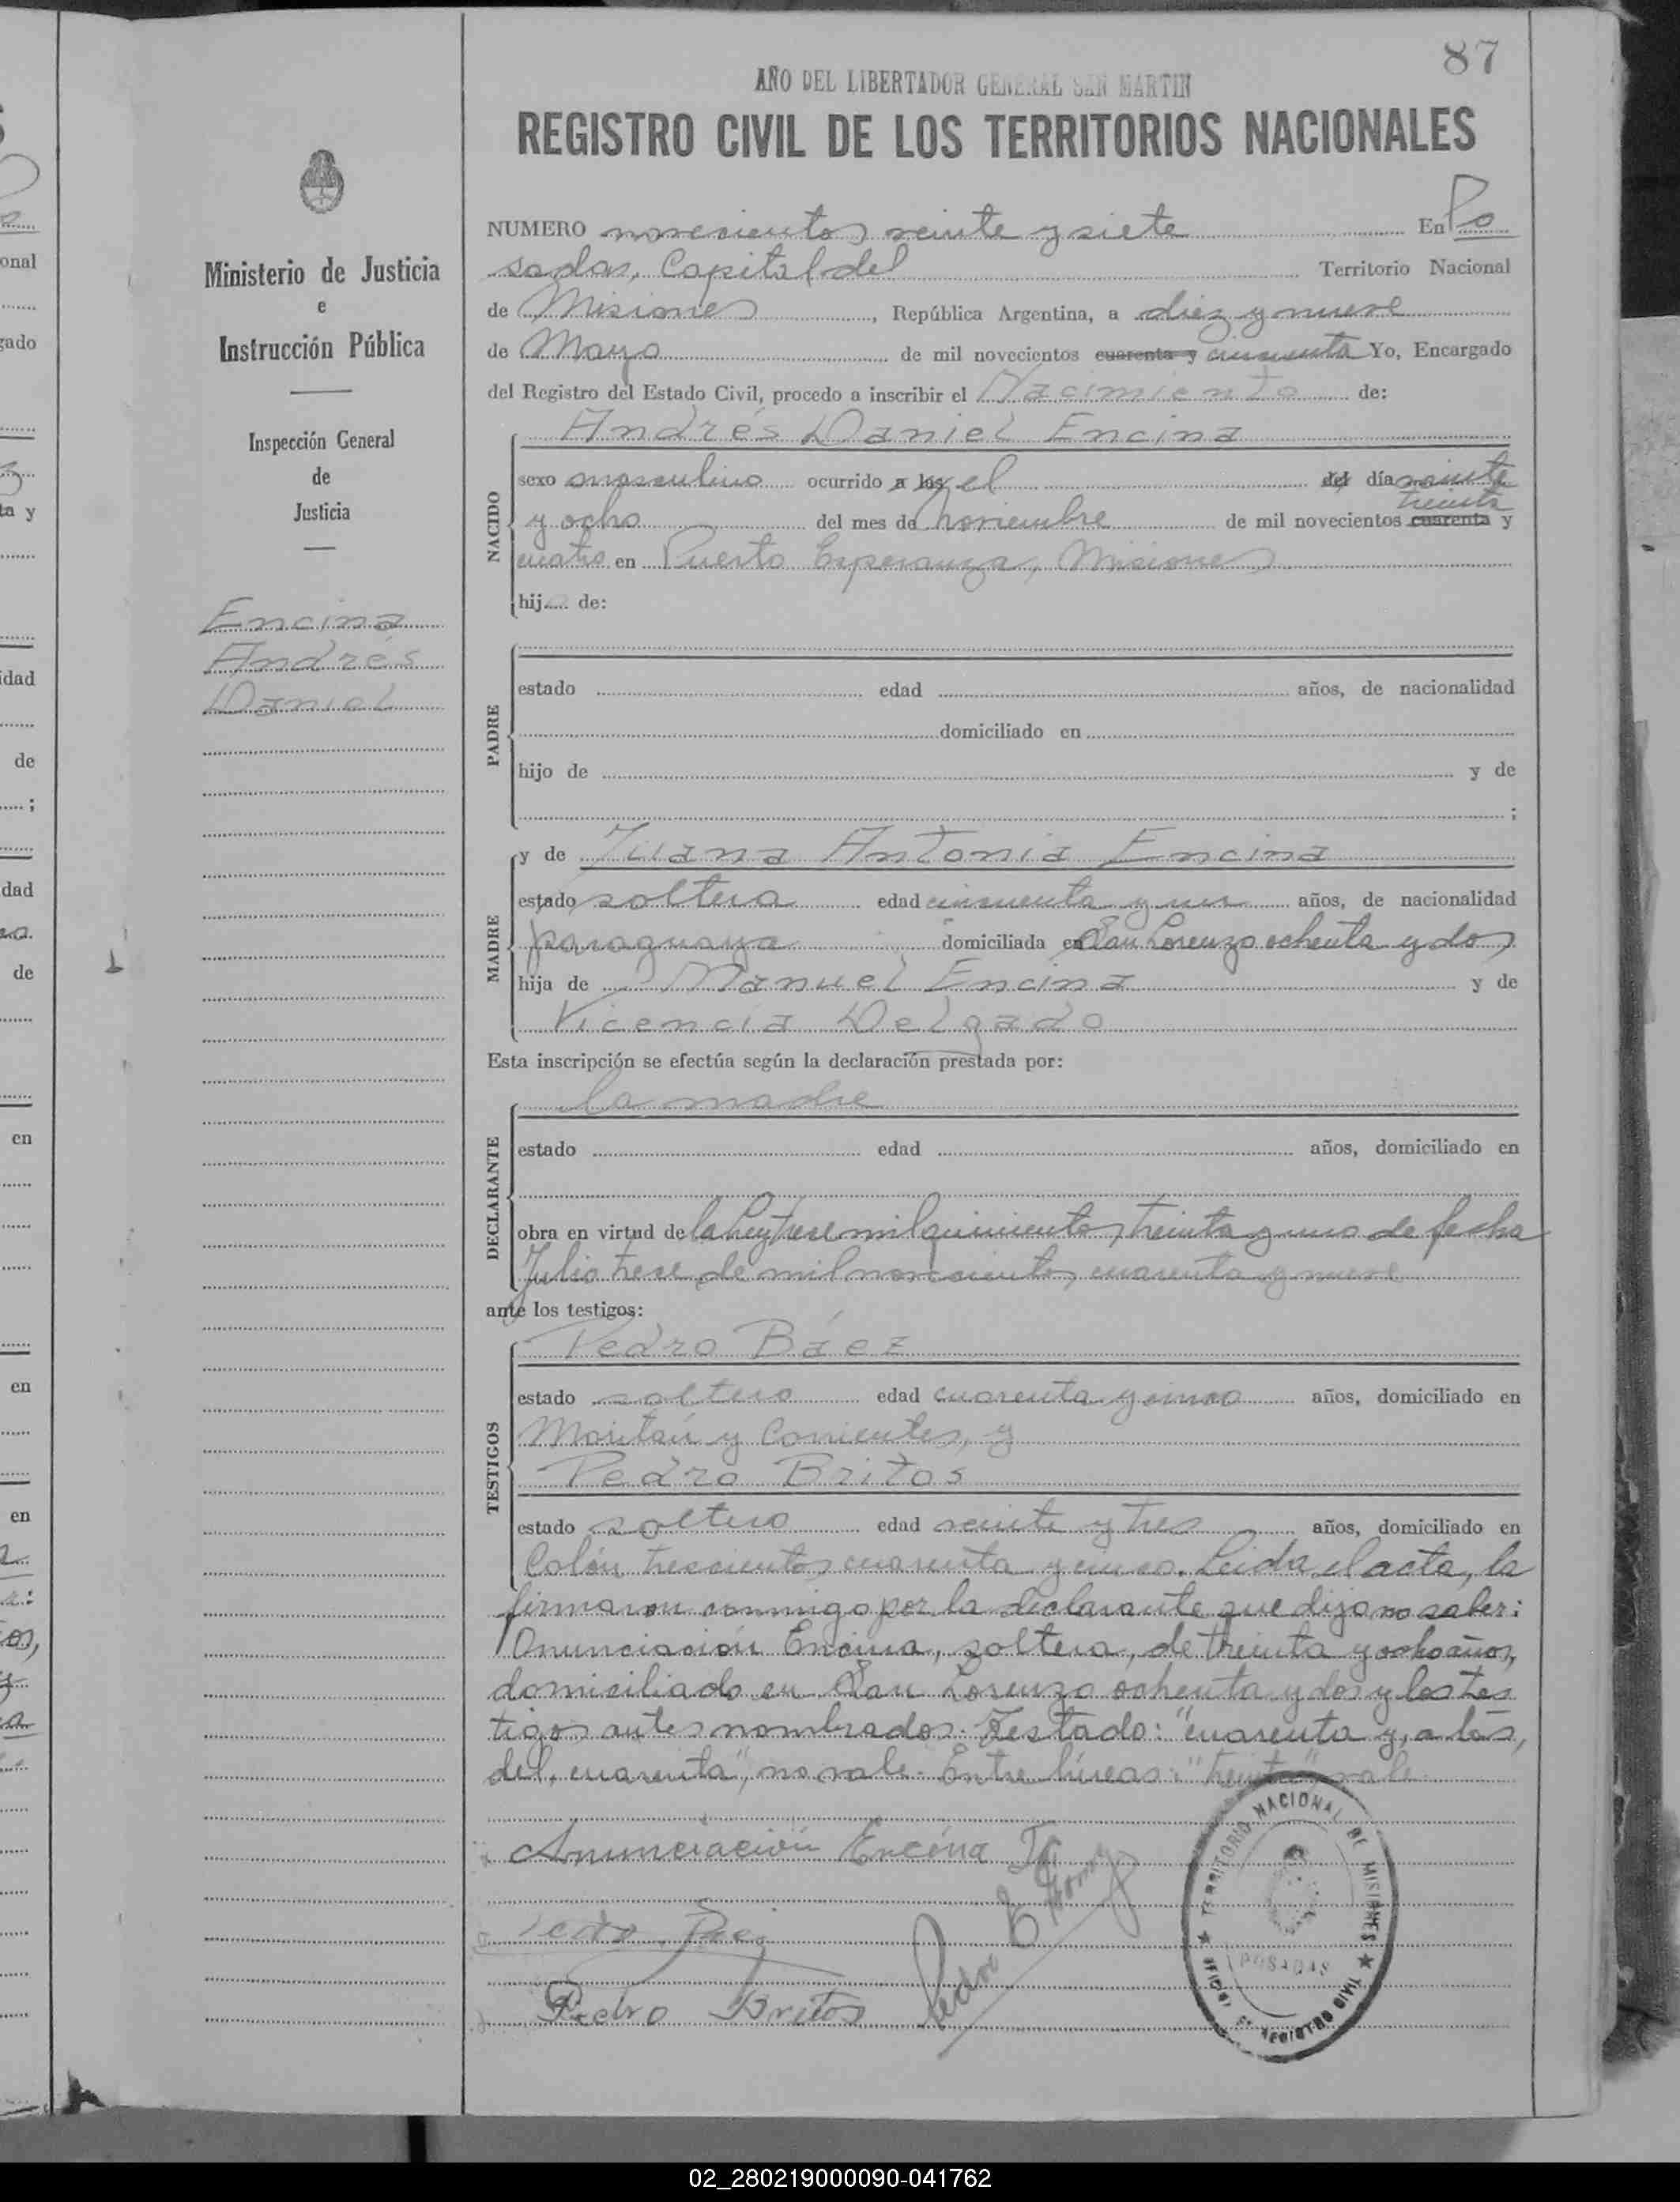 87
AÑO DEL LIBERTADOR GENERAL SAN MARTIN
REGISTRO CIVIL DE LOS TERRITORIOS NACIONALES
Ministerio de Justicia
e
Instrucción Pública
Inspección General
de
Justicia
Encina
Andrés
Daniel
NUMERO novecientos veinte y siete En Po
sadas, Capital del Territorio Nacional
de Misiones, República Argentina, a diez y nueve
de Mayo de mil novecientos cuarenta y cincuenta Yo, Encargado
del Registro del Estado Civil, procedo a inscribir el Nacimiento de:
NACIDO
Andrés Daniel Encina
sexo masculino ocurrido a las el del día veinte
treinta
y ocho del mes de noviembre de mil novecientos cuarenta y
cuatro en Puerto Esperanza, Misiones
hij de:
PADRE
estado edad años, de nacionalidad
domiciliado en
hijo de y de
;
MADRE
y de Juana Antonia Encina
estado soltera edad cincuenta y un años, de nacionalidad
paraguaya domiciliada en San Lorenzo ochenta y dos,
hija de Manuel Encina y de
Vicencia Delgado
Esta inscripción se efectúa según la declaración prestada por:
DECLARANTE
la madre
estado edad años, domiciliado en
obra en virtud de la Ley trece mil quinientos treinta y uno de fecha
Julio trece de mil novecientos cuarenta y nueve
ante los testigos:
TESTIGOS
Pedro Báez
estado soltero edad cuarenta y cinco años, domiciliado en
y Corrientes, y
Pedro Britos
estado soltero edad veinte y tres años, domiciliado en
Colón trescientos cuarenta y cinco. Leida el acta, la
firmaron conmigo por la declarante que dijo no saber:
Anunciación Encina, soltera, de treinta y ocho años,
domiciliado en San Lorenzo ochenta y dos y los tes
tigos antes nombrados. Testado: "cuarenta y, a las,
del, cuarenta", no vale. Entre líneas: "treinta" vale.
Anunciación Encina
Pedro Britos
TERRITORIO NACIONAL DE MISIONES
POSADAS
REGISTRO CIVIL
02_280219000090-041762